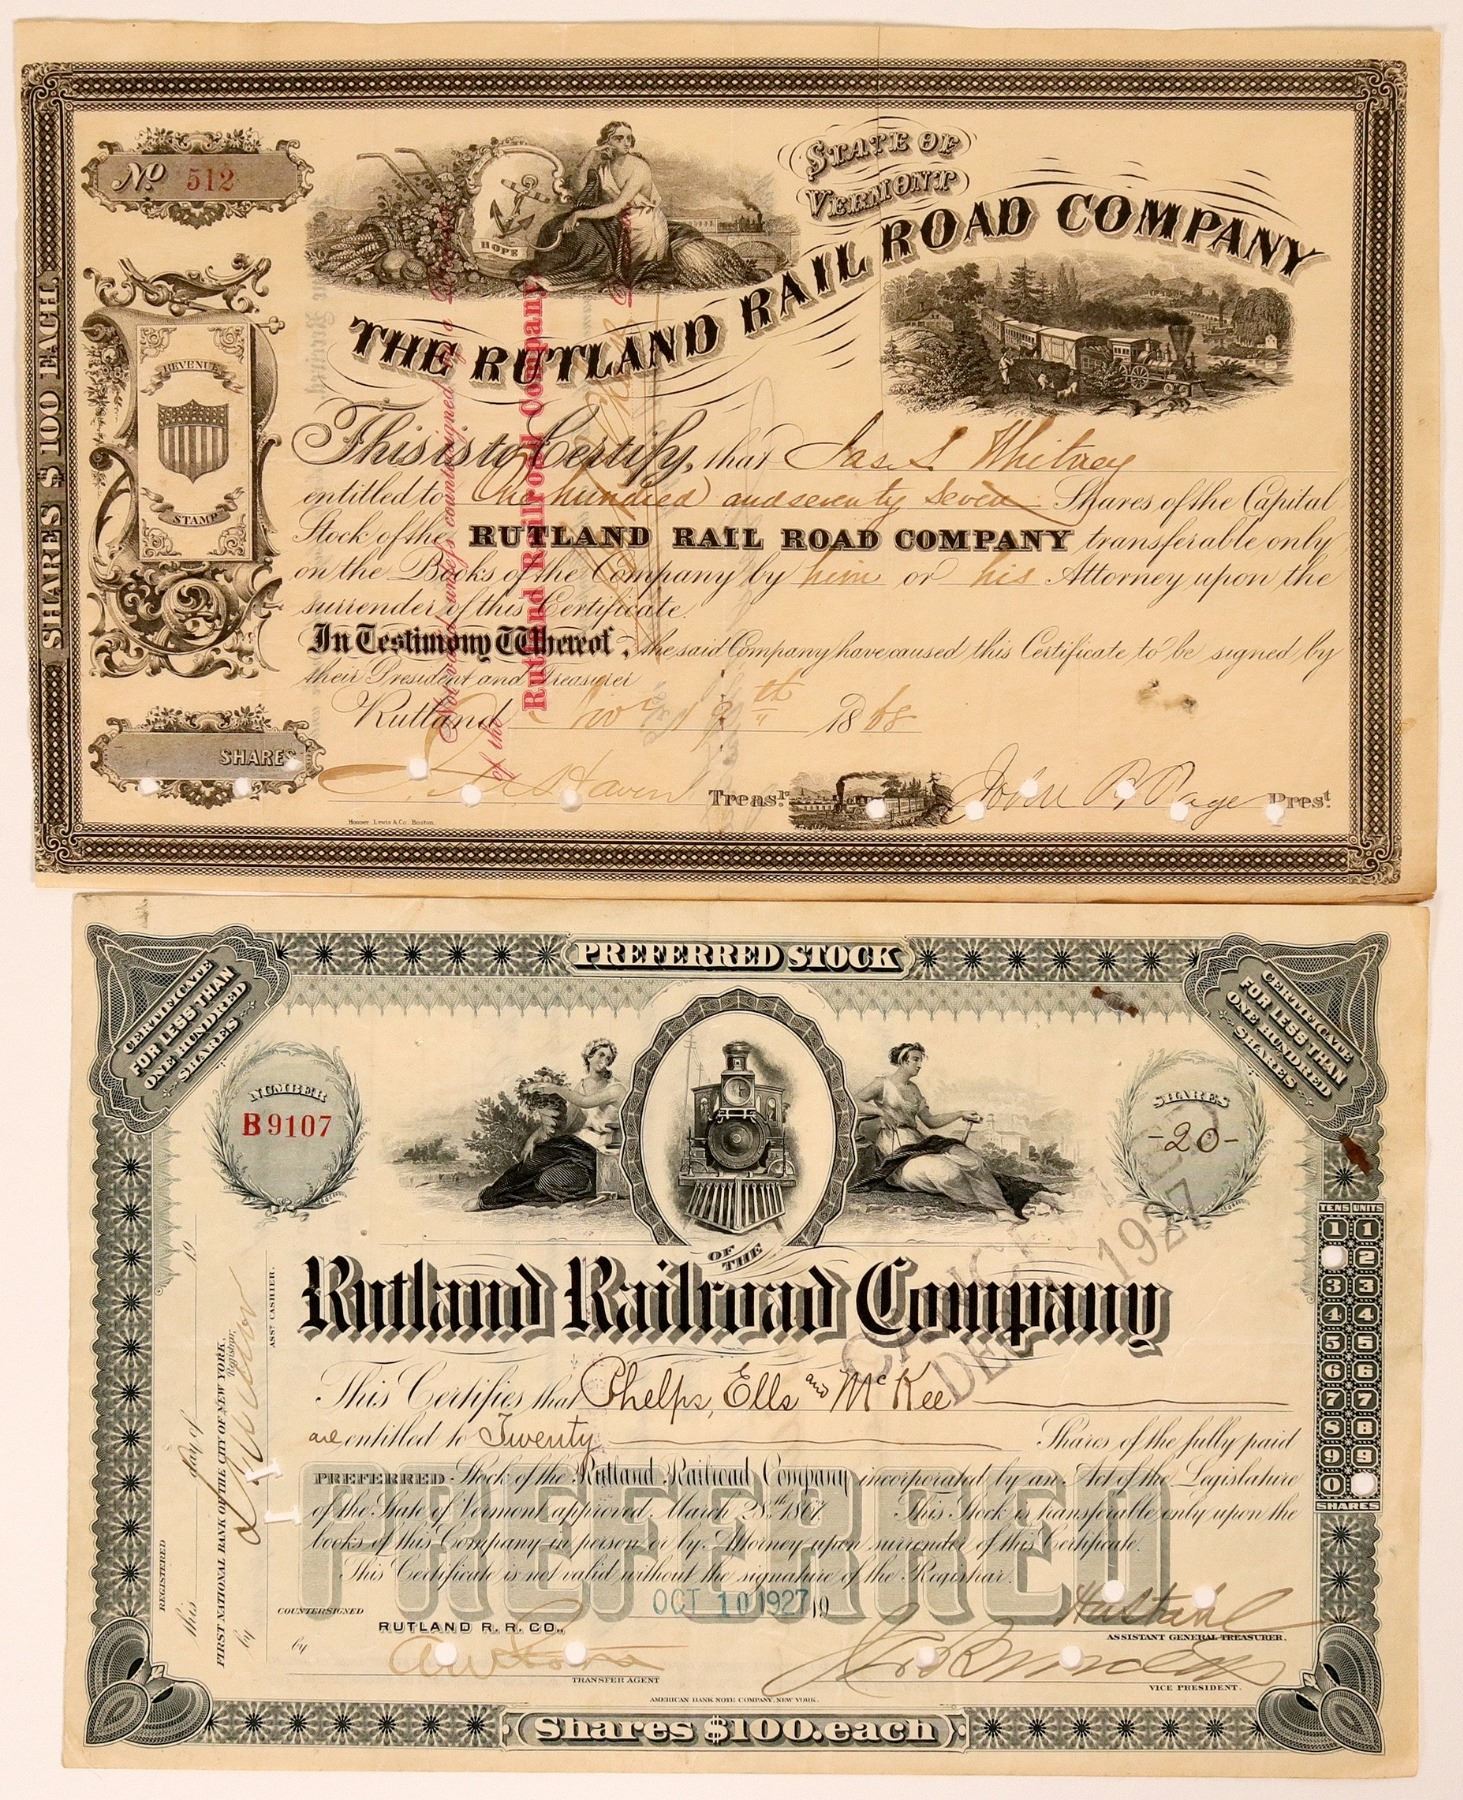 No 512
STATE OF
VERMONT
THE RUTLAND RAIL ROAD COMPANY
HOPE
SHARES $100 EACH
REVENUE
STAMP
This is to Certify, that Jas. L Whitney
entitled to One hundred and seventy Seven Shares of the Capital
Stock of the RUTLAND RAIL ROAD COMPANY transferable only
on the Books of the Company by him or his Attorney upon the
surrender of this Certificate.
In Testimony Whereof, the said Company have caused this Certificate to be signed by
their President and Treasurer
Rutland 1868
SHARES
Haven Treasr.
John B. Page Prest.
Hooper Lewis & Co. Boston.
Not valid unless countersigned by a
of the Rutland Railroad Company
PREFERRED STOCK
CERTIFICATE
FOR LESS THAN
ONE HUNDRED
SHARES
CERTIFICATE
FOR LESS THAN
ONE HUNDRED
SHARES
NUMBER
B9107
SHARES
-20-
OF
THE
Rutland Railroad Company
CANCELLED
DEC 1927
This Certifies that Phelps, Ells and McKee
are entitled to Twenty Shares of the fully paid
PREFERRED Stock of the Rutland Railroad Company incorporated by an Act of the Legislature
of the State of Vermont approved March 28th 1867. This Stock is transferable only upon the
books of this Company in person or by Attorney upon surrender of this Certificate.
This Certificate is not valid without the signature of the Registrar.
PREFERRED
OCT 10 1927 19
COUNTERSIGNED
RUTLAND R. R. CO.,
by
TRANSFER AGENT
ASSISTANT GENERAL TREASURER.
VICE PRESIDENT.
AMERICAN BANK NOTE COMPANY, NEW YORK.
Shares $100. each
REGISTERED
this day of 19
FIRST NATIONAL BANK OF THE CITY OF NEW YORK,
Registrar,
by
ASST CASHIER.
TENS UNITS
1 1
2
3 3
4 4
5 5
6 6
7 7
8 8
9 9
0
SHARES